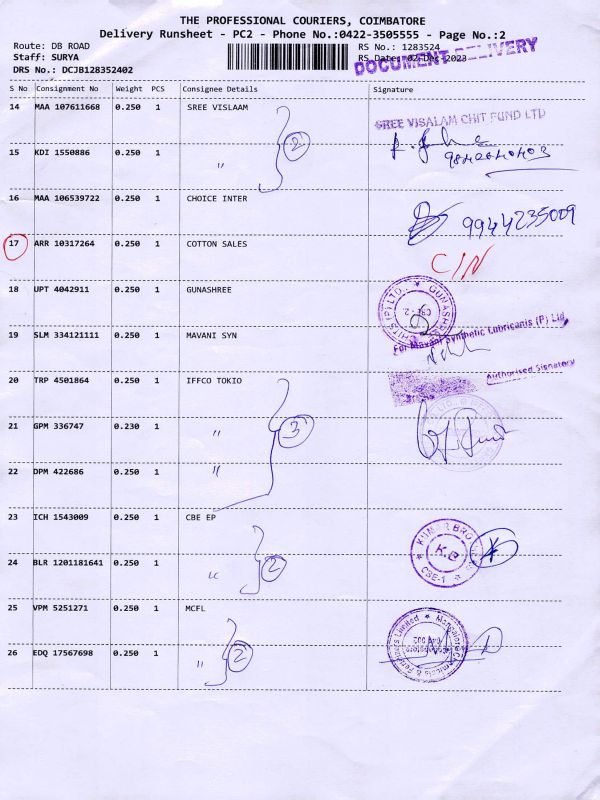 THE PROFESSIONAL COURIERS, COIMBATORE
Delivery Runsheet - PC2 - Phone No.:0422-3505555 - Page No.:2
Route: DB ROAD RS No.: 1283524
Staff: SURYA RS Date: 02-Dec-2023
DOCUMENT DELIVERY
DRS No.: DCJB128352402
S No Consignment No Weight PCS Consignee Details Signature
14 MAA 107611668 0.250 1 SREE VISLAAM
SREE VISALAM CHIT FUND LTD
15 KDI 1550886 0.250 1 " 2
16 MAA 106539722 0.250 1 CHOICE INTER
9944235009
17 ARR 10317264 0.250 1 COTTON SALES
C/N
18 UPT 4042911 0.250 1 GUNASHREE
GUNASHREE CHITS (P) LTD. CBE-2
19 SLM 334121111 0.250 1 MAVANI SYN
For Mavani Synthetic Lubricants (P) Ltd.
Authorised Signatory
20 TRP 4501864 0.250 1 IFFCO TOKIO
21 GPM 336747 0.230 1 " 3
22 DPM 422686 0.250 1 "
23 ICH 1543009 0.250 1 CBE EP
KUMAR BRO
K.B
CBE-1
24 BLR 1201181641 0.250 1 " 2
25 VPM 5251271 0.250 1 MCFL
Mangalore Chemicals & Fertilizers Limited
26 EDQ 17567698 0.250 1 " 2